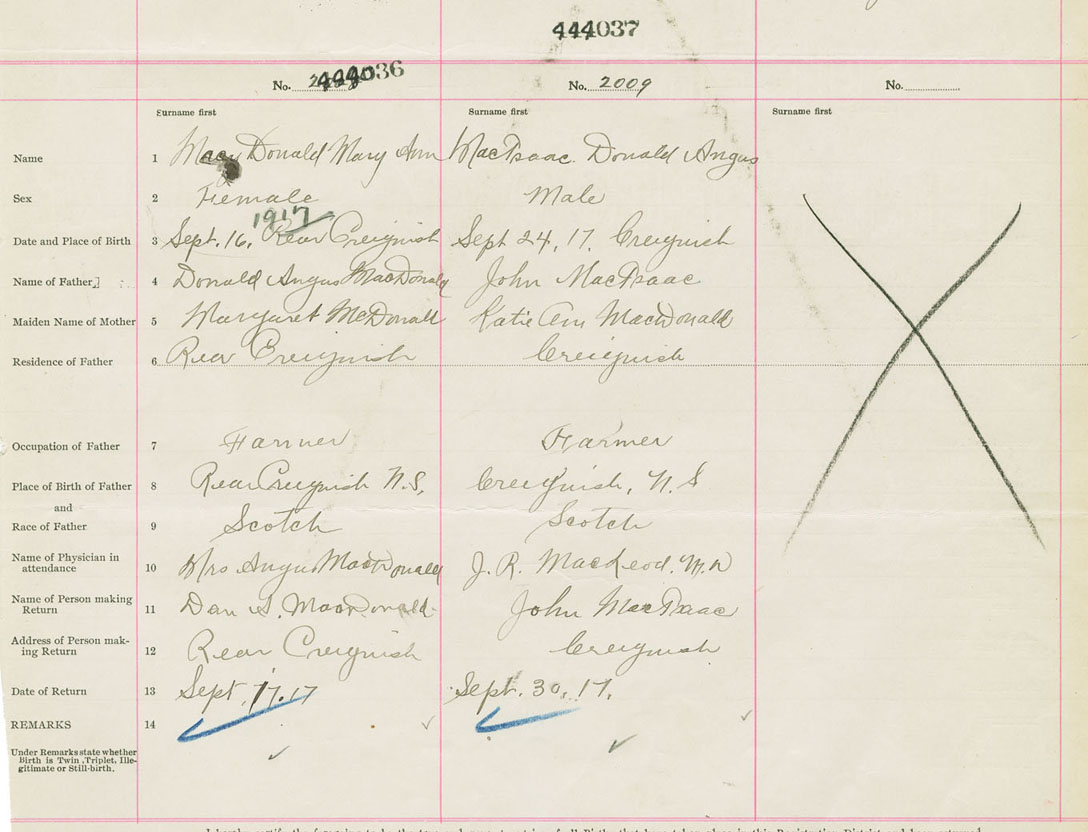 444037
444036
No. No. 2009 No.
Surname first Surname first Surname first
Name 1 MacDonald Mary Ann MacIsaac. Donald Angus
Sex 2 Female Male
1917
Date and Place of Birth 3 Sept. 16, Rear Creignish Sept 24, 17. Creignish
Name of Father 4 Donald Angus MacDonald John MacIsaac
Maiden Name of Mother 5 Margaret McDonald Katie Ann MacDonald
Residence of Father 6 Rear Creignish Creignish
Occupation of Father 7 Farmer Farmer
Place of Birth of Father 8 Rear Creignish N.S, Creignish, N.S
and
Race of Father 9 Scotch Scotch
Name of Physician in
attendance 10 Mrs Angus MacDonald J. R. MacLeod. M.D
Name of Person making
Return 11 Dan S. MacDonald John MacIsaac
Address of Person mak-
ing Return 12 Rear Creignish Creignish
Date of Return 13 Sept. 17. 17 Sept. 30, 17.
REMARKS 14
Under Remarks state whether
Birth is Twin, Triplet, Ille-
gitimate or Still-birth.